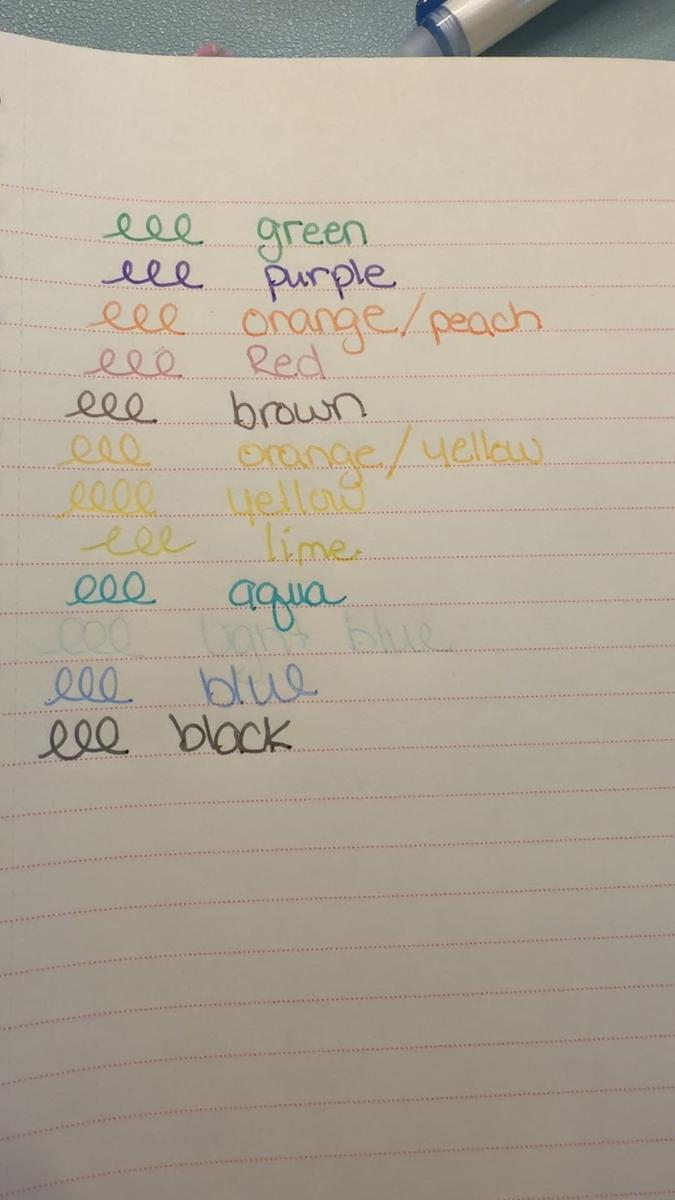 eee green
eee purple
eee orange/peach
eee Red
eee brown
eee orange/yellow
eeee yellow
eee lime
eee aqua
eee light blue
eee blue
eee black